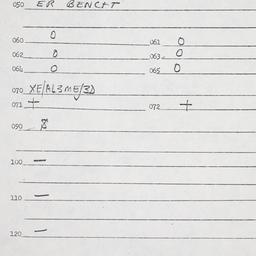 050 ER BENCHT
060 0 061 0
062 0 063 0
064 0 065 0
070 XE/AL3ME/3D
071 + 072 +
090
100 —
110 —
120 —